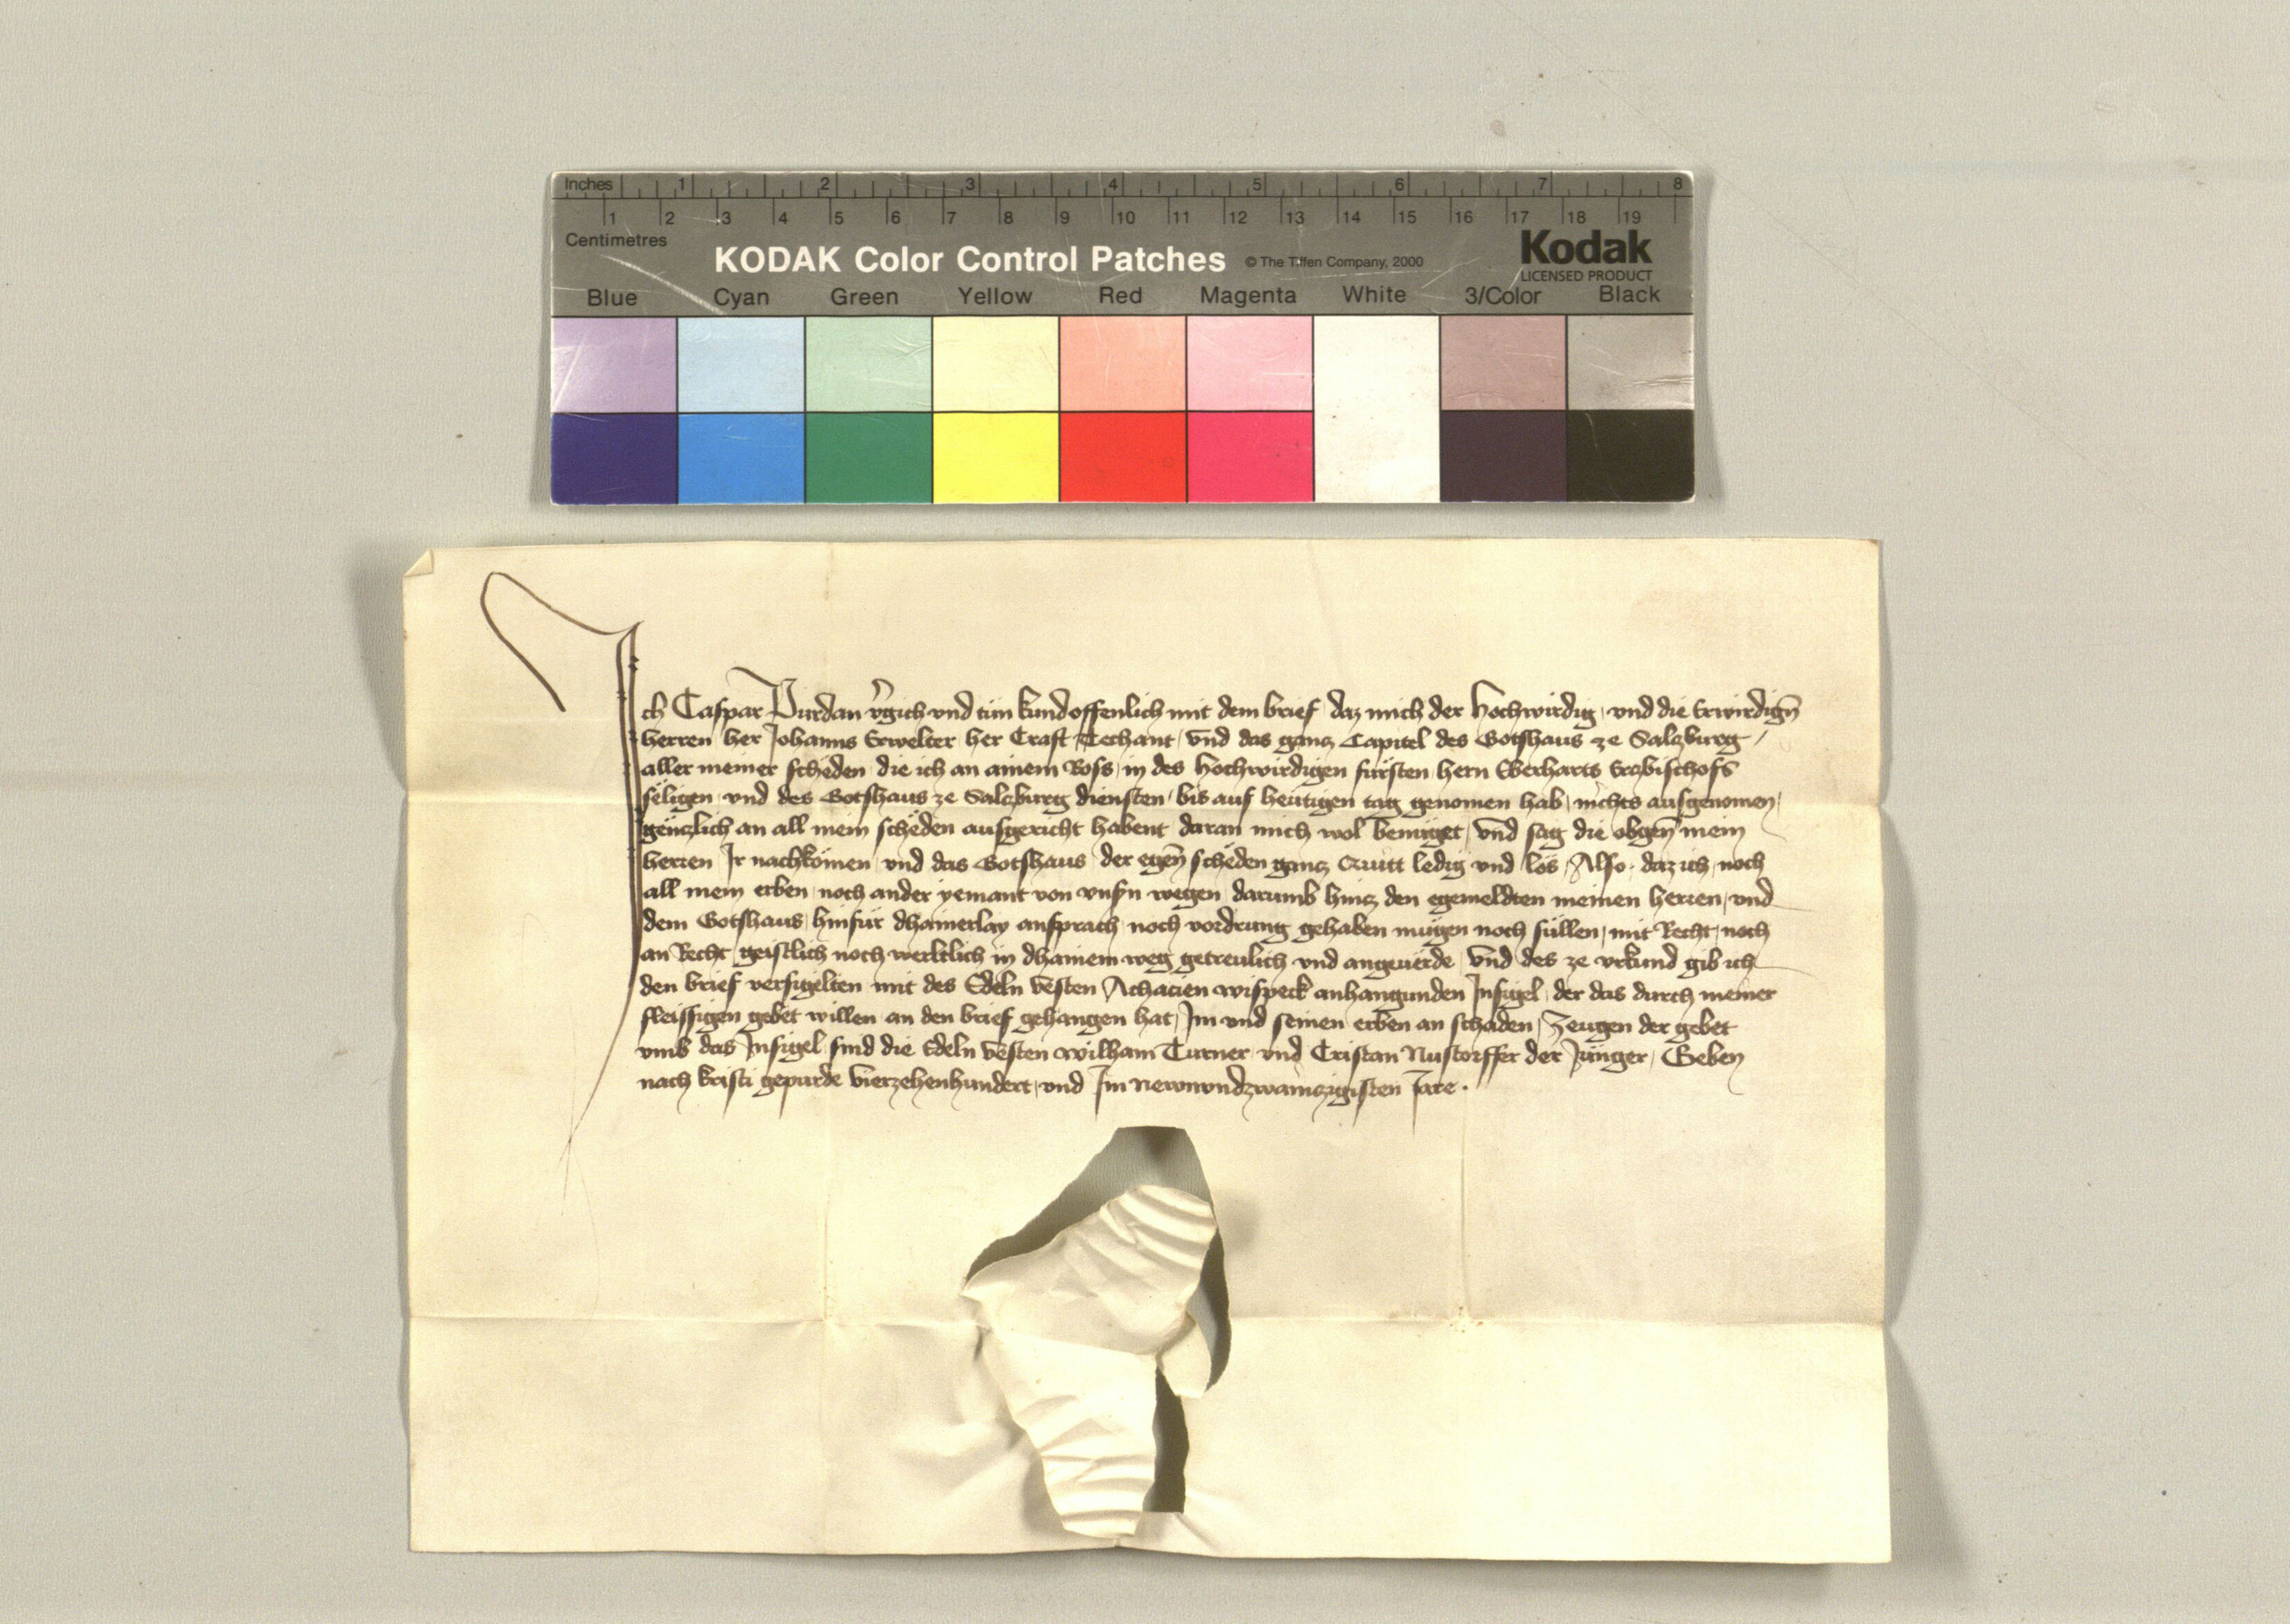 Inches 1 2 3 4 5 6 7 8
1 2 3 4 5 6 7 8 9 10 11 12 13 14 15 16 17 18 19
Centimetres
KODAK Color Control Patches © The Tiffen Company, 2000 Kodak
LICENSED PRODUCT
Blue Cyan Green Yellow Red Magenta White 3/Color Black
Ich Caspar Purdan v̄gich vnd tün kund offenlich mit dem brief daz mich der Hochwirdig vnd die Erwirdign̄
herren her Johanns Erwelter her Craft Techant vnd das gancz Capitel des Gotshaus ze Salczburg /
aller meiner schëden die ich an ainem Ross in des Hochwirdigen fürsten hern Eberharts Erczbischofs
sëligen vnd des Gotshaus ze Salczburg diensten bis auf heütigen tag genomen hab nichts ausgenomen
gënczlich an all mein schëden ausgericht habent daran mich wol benüget vnd sag die obgen̄ mein
herren Ir nachkömen vnd das Gotshaus der egen̄ schëden gancz Quitt ledig vnd los Also daz ich noch
all mein erben noch ander yemant von vnsn̄ wegen darumb hincz den egemeldten meinen herren vnd
dem Gotshaus hinfür dhainerlay ansprach noch vordrung gehaben mügen noch süllen mit Recht noch
an Recht geistlich noch werltlich in dhainem weg getreulich vnd angeuërde Vnd des ze vrkund gib ich
den brief versigelten mit des Edeln vesten Achacien wispeck anhangunden Insigel der das durch meiner
fleissigen gebet willen an den brief gehangen hat Im vnd seinen erben an schaden Zeugen der gebet
vmb das Insigel sind die Edeln vesten wilham Turner vnd Cristan Nustorffer der Jünger Geben
nach kristi gepurde vierzehenhundert vnd Im newnvndzwainczigisten Jare .